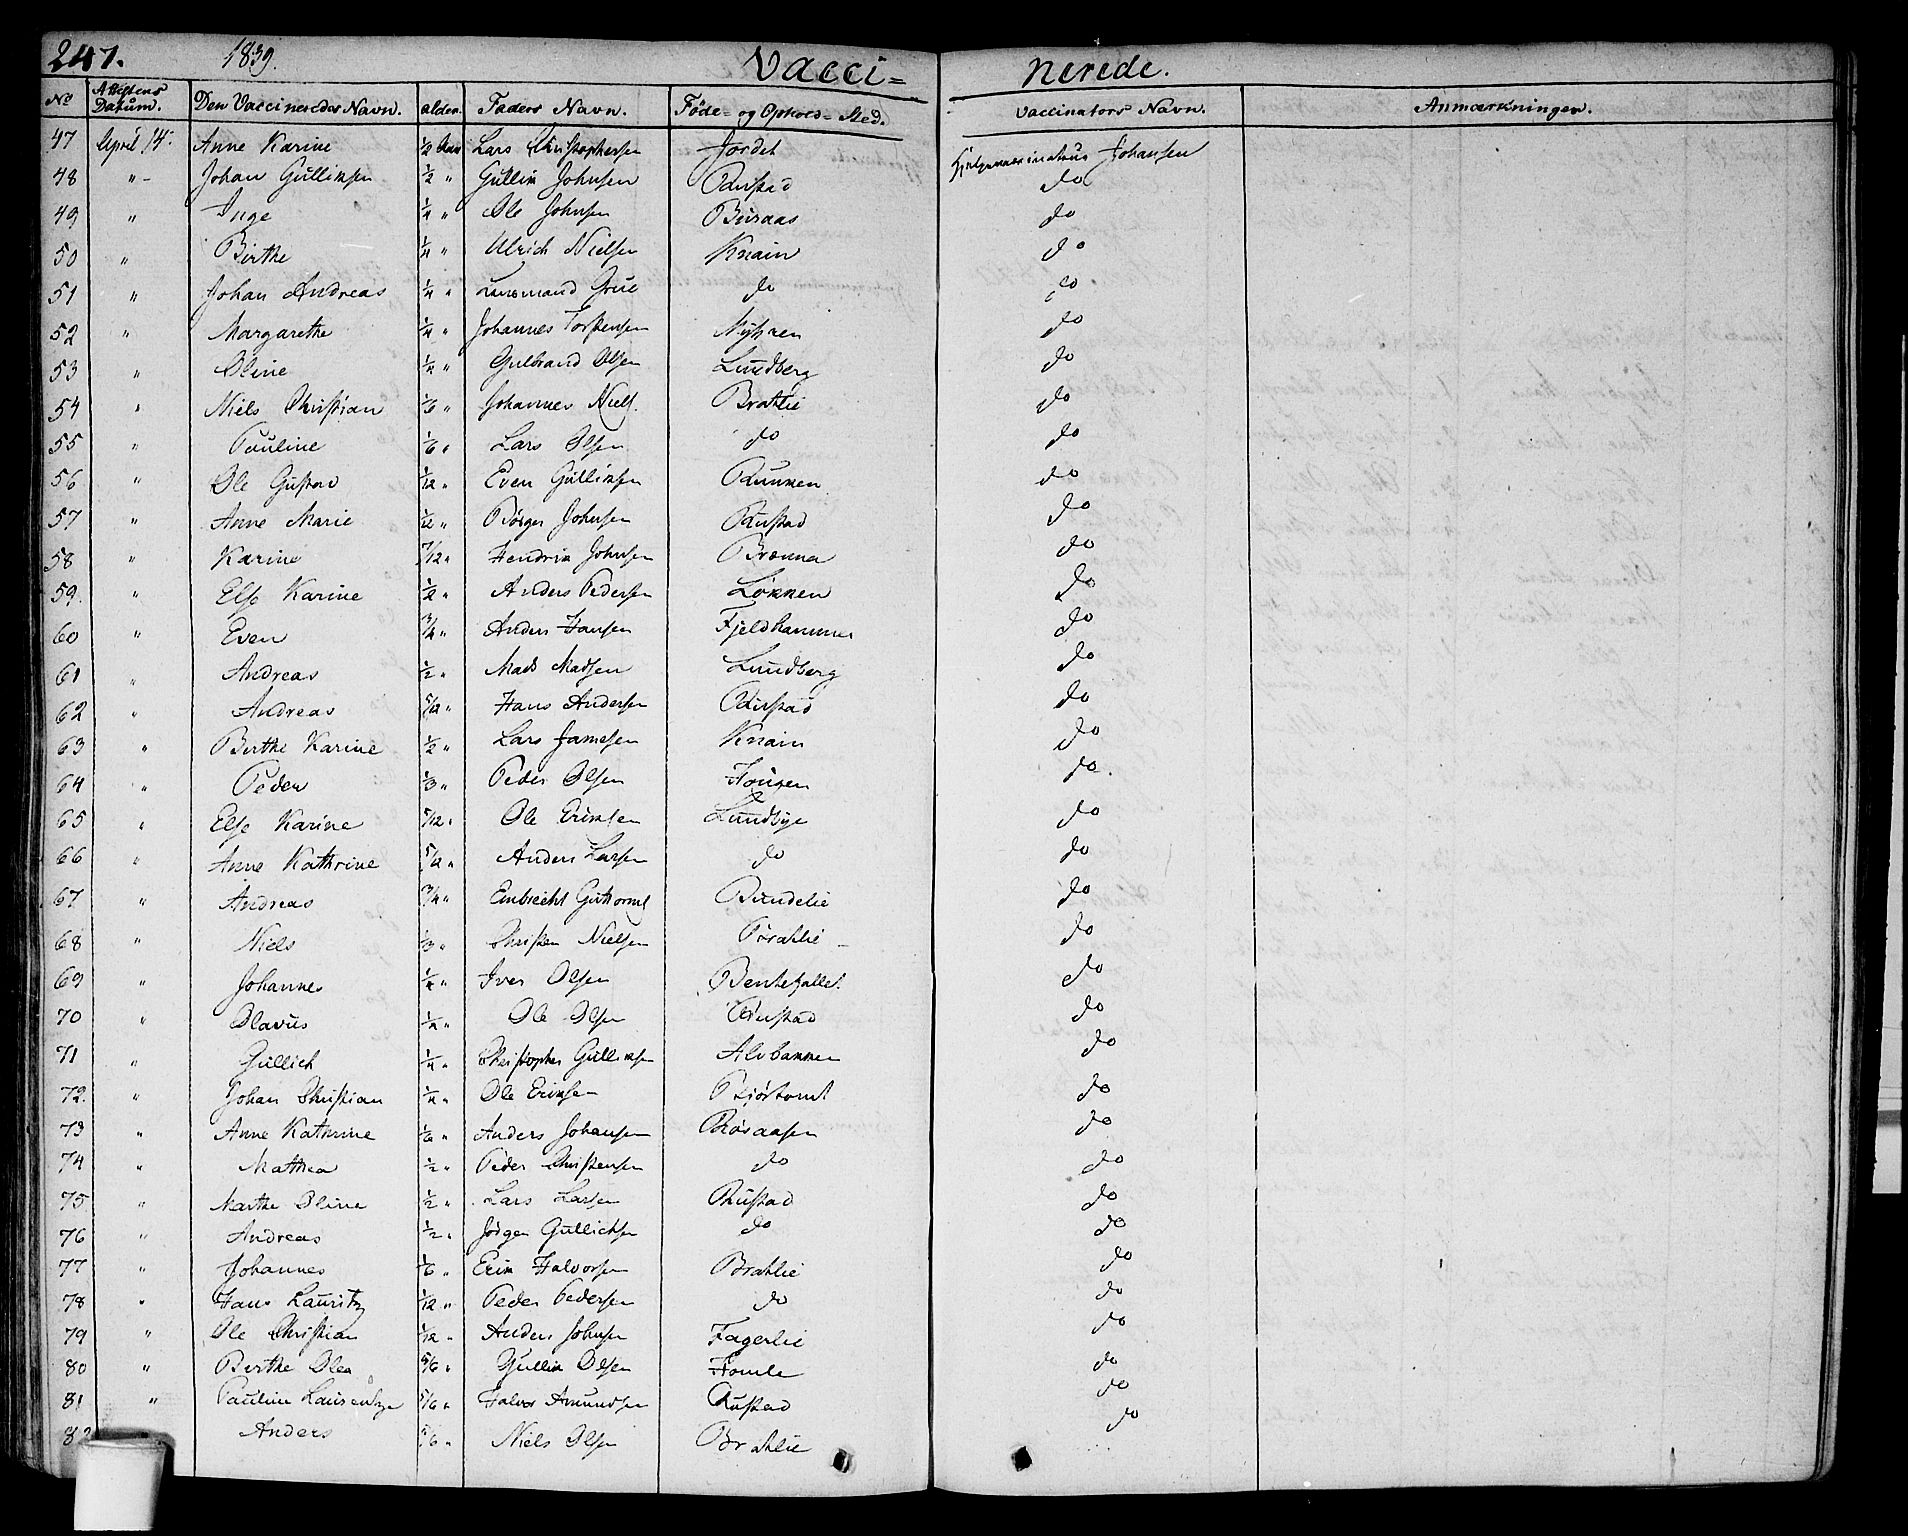 247. 1839. Vacci= nerede.
No Attestens Datum. Den Vaccineredes Navn. alder. Faders Navn. Føde- og Ophold-Sted. Vaccinators Navn. Anmærkninger.
47 April 14. Anne Karine 1/2 Aar Lars Christophersen Jordet Johansen
48 " Johan Gulliksen 1/2 " Gullik Johnsen Rustad do
49 " Inge 1/4 " Ole Johnsen Buraas do
50 " Birthe 1/4 " Ulrich Nielsen Knain do
51 " Johan Andreas 1/4 " Lensmand Grue do do
52 " Margarethe 1/4 " Johannes Torstensen do
53 " Oline 1/4 " Gulbrand Olsen Lundberg do
54 " Niels Christian 1/6 " Johannes Niels. Bratlie do
55 " Pauline 1/6 " Lars Olsen do do
56 " Ole Gustav 1/12 " Even Gulliksen Runken do
57 " Anne Marie 1/12 " Børger Johnsen Rustad do
58 " Karine 7/12 " Hendrik Johnsen Brænna do
59. " Else Karine 1/2 " Anders Pedersen Løkken do
60 " Even 3/4 " Anders Hansen Fjeldhammer do
61 " Andreas 1/2 " Mads Madsen Lundberg do
62 " Andreas Hans Andersen Rustad do
63 " Birthe Karine 1/2 " Lars Jamesen Knain do
64 " Peder 1/3 " Peder Olsen Hougen do
65 " Else Karine 5/12 " Ole Eriksen Lundbye do
66 " Anne Kathrine Anders Larsen do do
67 " Andreas 3/4 " Embrecht Guttorms Bundelie do
68 " Niels 1/3 " Christen Nielsen Bratlie do
69 " Johannes 1/4 " Iver Olsen do
70 " Olavus 1/4 " Ole Olsen Rustad do
71 " Gullich 1/4 " Christopher Gulliksen Alvbakken do
72. " Johan Christian 1/4 " Ole Eriksen do
73 " Anne Kathrine 1/6 " Anders Johansen Røsaasen do
74 " Mathea 1/2 " Peder Christensen do do
75 " Marthe Oline 1/2 " Lars Larsen Rustad do
76 " Andreas 1/2 " Jørgen Gullichsen do do
77 " Johannes 1/6 " Erik Halvorsen Bratlie do
78 " Hans Lauritz 1/12 " Peder Pedersen do do
79 " Ole Christian 1/12 " Anders Johnsen Fagerlie do
80 " Berthe Olea 5/6 " Gullik Olsen Homle do
81 " Pauline 5/6 " Halvor Amundsen Rustad do
82 Anders 5/6 " Niels Olsen Bratlie do